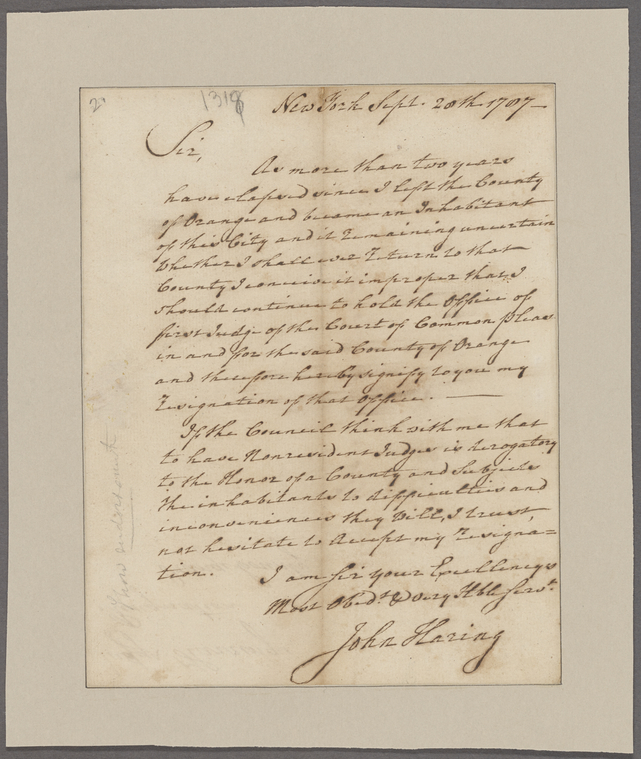 2
1318
New York Sept. 28th 1787 —
Sir,
As more than two years
have elapsed since I left the County
of Orange and became an Inhabitant
of this City and it remaining uncertain
whether I shall ever return to that
County I conceive it improper that I
should continue to hold the Office of
first Judge of the Court of Common Pleas
in and for the said County of Orange
and therefore hereby signify to you my
resignation of that Office. —
If the Council think with me that
to have Nonresident Judges is derogatory
to the Honor of a County and Subjects
the inhabitants to difficulties and
inconveniences they Will, I trust,
not hesitate to Accept my resigna=
tion.
I am Sir your Excellencys
Most Obedt. & very Hble Servt.
John Haring
endorsement